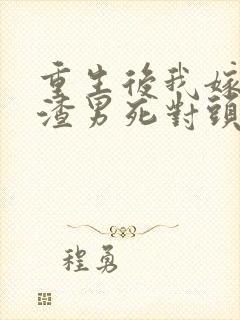 重生後我嫁
渣男死對頭
程勇